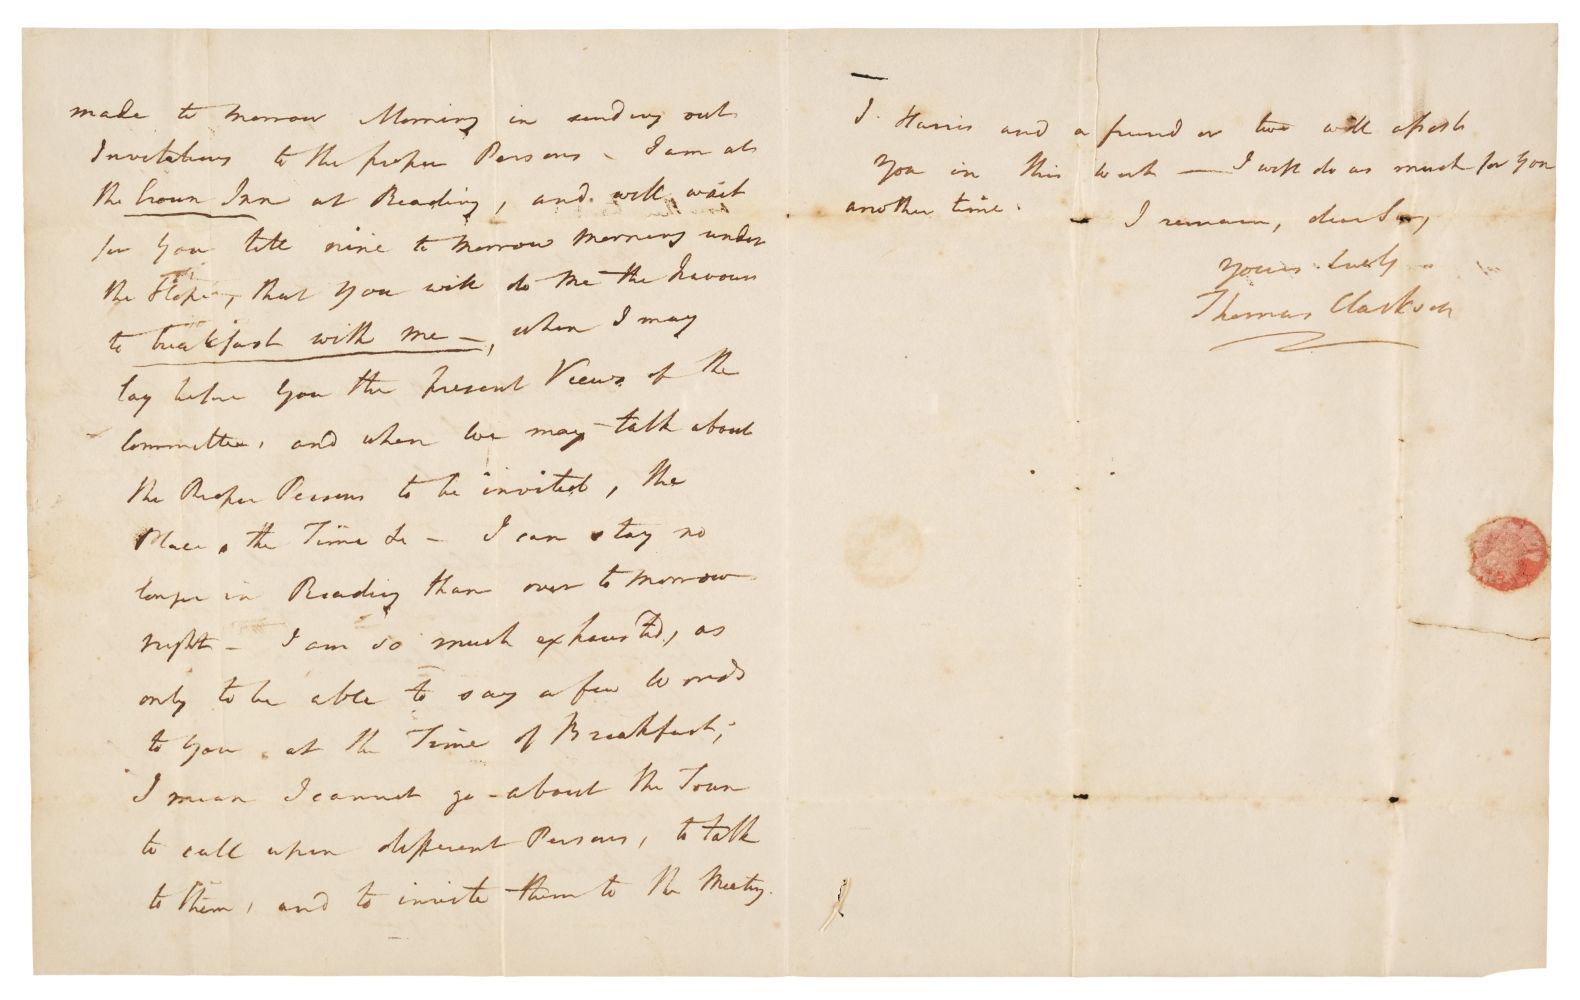 made to morrow Morning in sending out
Invitations to the proper Persons – I am at
the Crown Inn at Reading, and will wait
for you till nine to morrow morning under
the Hope, that you will do me the Favour
to breakfast with me –, when I may
lay before you the present Views of the
Committee, and when we may talk about
the Proper Persons to be invited, the
Place, the Time &c – I can stay no
longer in Reading than over to morrow
night – I am so much exhausted, as
only to be able to say a few words
to you at the Time of Breakfast;
I mean I cannot go about the Town
to call upon different Persons, to talk
to them, and to invite them to the Meeting.
J. Harris and a friend or two will assist
you in this work — I will do as much for you
another time.
I remain, dear Sir,
yours truly
Thomas Clarkson